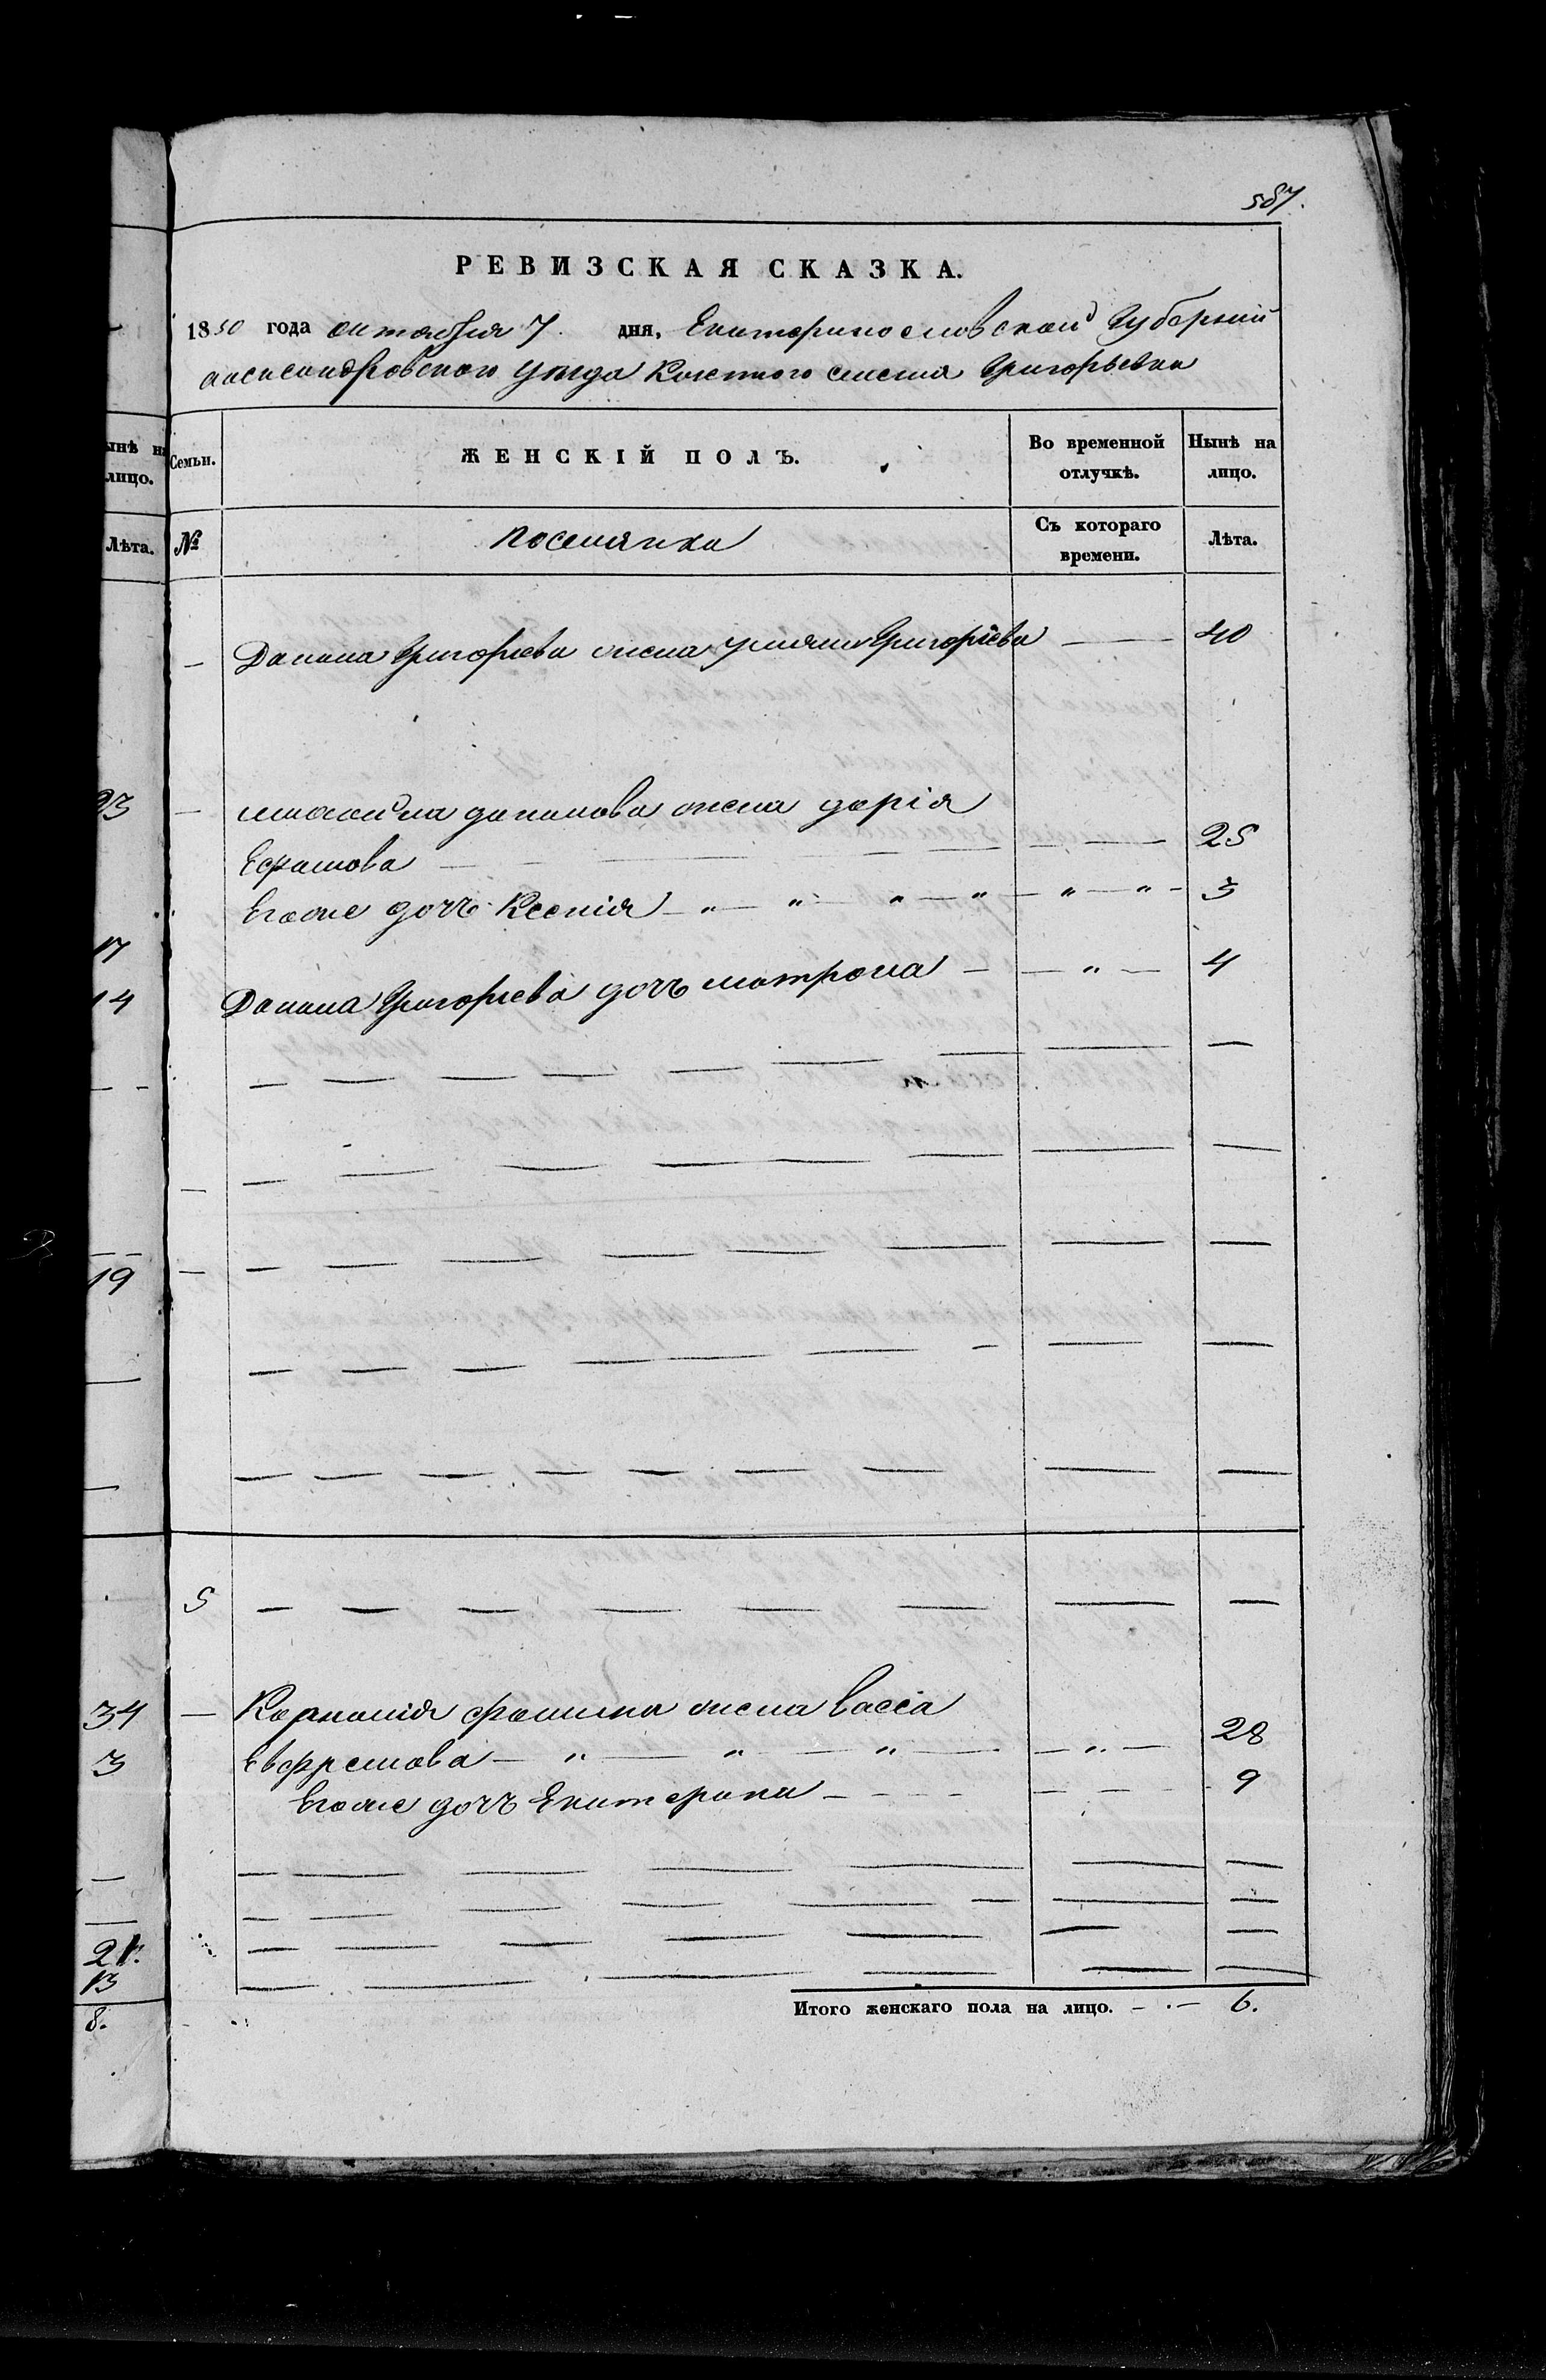 587.
РЕВИЗСКАЯ СКАЗКА.
1850 года октября 7. дня, Екатеринославской Губернии
Александровского уезда Казенного селения Григорьевки
ынѣ на лицо.
Семьи.
ЖЕНСКІЙ ПОЛЪ.
Во временной отлучкѣ.
Нынѣ на лицо.
Лѣта.
№
Поселянка
Съ котораго времени.
Лѣта.
— Данила Григорьева жена Ульяна Григорьева — 40
23
— данилова жена дарія
Ефимова — 25
Егоже дочь Ксенія — „ — „ — „ — „ — „ — „ — 3
17
Данила Григорьева дочь матрона — „ — 4
14
19
5
34
— фомина жена васса
Евфремова — „ — „ — „ — „ — 28
3
Егоже дочь Екатерина — 9
21.
13
Итого женскаго пола на лицо. — 6.
8.